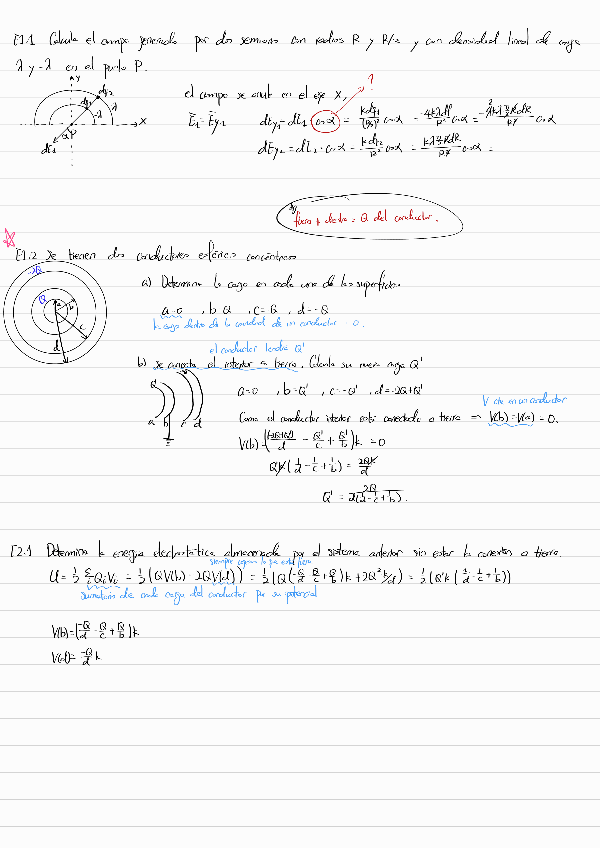 E1.1 Calcula el campo generado por dos semiaros con radios R y R/2 y con densidad lineal de carga
λ y -λ en el punto P.
el campo se anula en el eje x,
E₁ = Ey₂ dEy₁ = dE₁ · cosα = k dq₁ / (R/2)² cosα = 4kλdl / R² cosα = cosα
dEy₂ = dE₂ · cosα = k dq₂ / R² cosα = cosα =
y
x
dq₂
dq₁
λ
-λ
P
dE₂
?
fuera + dentro = Q del conductor.
E1.2 Se tienen dos conductores esféricos concéntricos
-2Q
Q
a
b
c
d
a) Determina la carga en cada una de las superficies
a=0 , b=Q , c=-Q , d=-Q
la carga dentro de la cavidad de un conductor = 0.
el conductor tendrá Q'
b) se conecta el interior a tierra. Calcula su nueva carga Q'
a b c d
a=0 , b=Q' , c=-Q' , d=-2Q+Q'
V cte en un conductor
Como el conductor interior está conectado a tierra ⇒ V(b)=V(a)=0.
V(b) = ((-2Q+Q')/d - Q'/c + Q'/b)k = 0
Q'k(1/d - 1/c + 1/b) = 2Qk/d
Q' = 2Q / d(1/d - 1/c + 1/b).
E2.1 Determina la energía electrostática almacenada por el sistema anterior sin estar la conexión a tierra.
siempre cogemos la que está fuera
U = 1/2 Σ QᵢVᵢ = 1/2 (QV(b) - 2QV(d)) = 1/2 [Q(-Q/d - Q/c + Q/b)k + 2Q²k/d] = 1/2 (Q²k (1/d - 1/c + 1/b))
Sumatorio de cada carga del conductor por su potencial
V(b) = (-Q/d - Q/c + Q/b)k
V(d) = -Q/d k